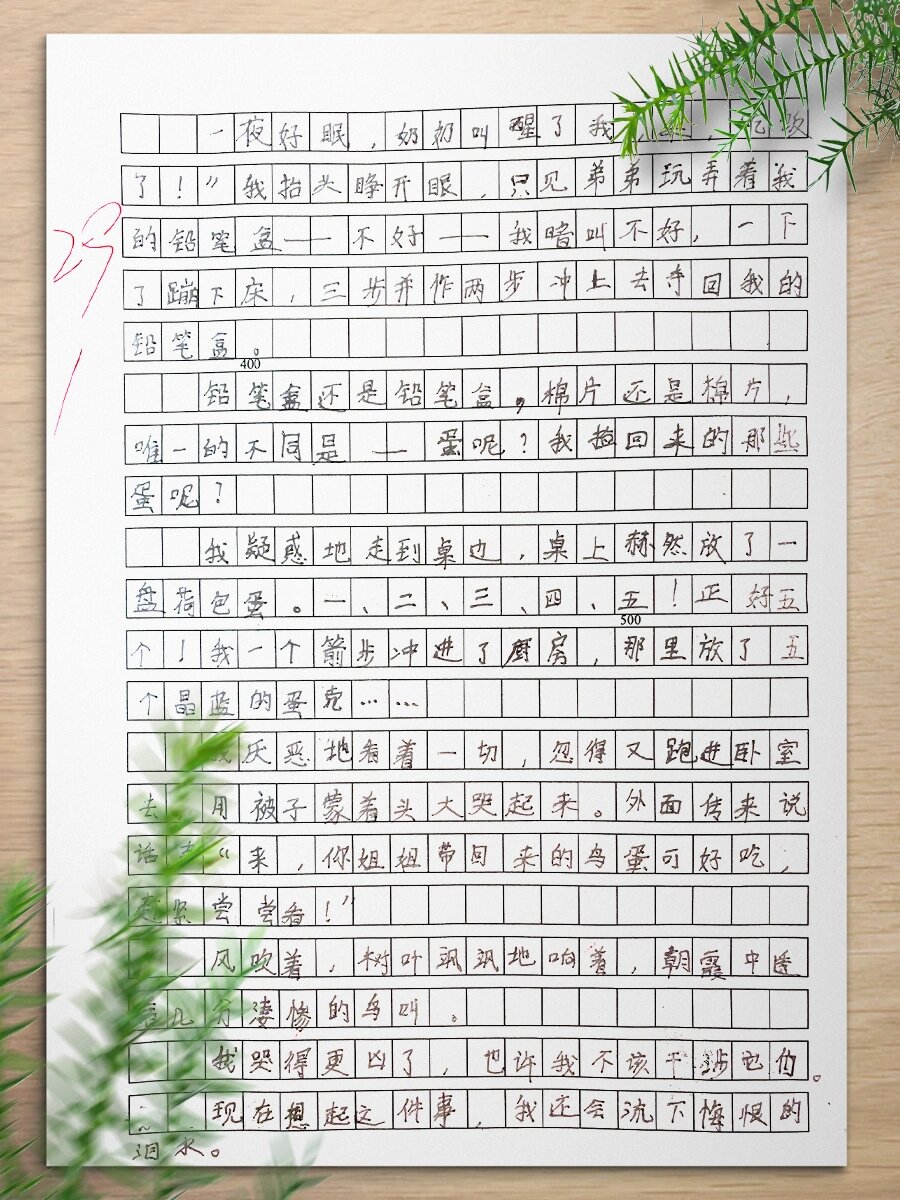 一夜好眠，奶奶叫醒了我
了！”我抬头睁开眼，只见弟弟玩弄着我
的铅笔盒——不好——我暗叫不好，一下
了蹦下床，三步并作两步冲上去夺回我的
铅笔盒。
400
铅笔盒还是铅笔盒，棉片还是棉片，
唯一的不同是——蛋呢？我捡回来的那些
蛋呢？
我疑惑地走到桌边，桌上赫然放了一
盘荷包蛋。一、二、三、四、五！正好五
500
个！我一个箭步冲进了厨房，那里放了五
个晶蓝的蛋壳……
我厌恶地看着一切，忽得又跑进卧室
去，用被子蒙着头大哭起来。外面传来说
话声“来，你姐姐带回来的鸟蛋可好吃，
赶紧尝尝看！”
风吹着，树叶飒飒地响着，朝霞中透
着几分凄惨的鸟叫。
我哭得更凶了，也许我不该干涉它们。
现在想起这件事，我还会流下悔恨的
泪水。
29